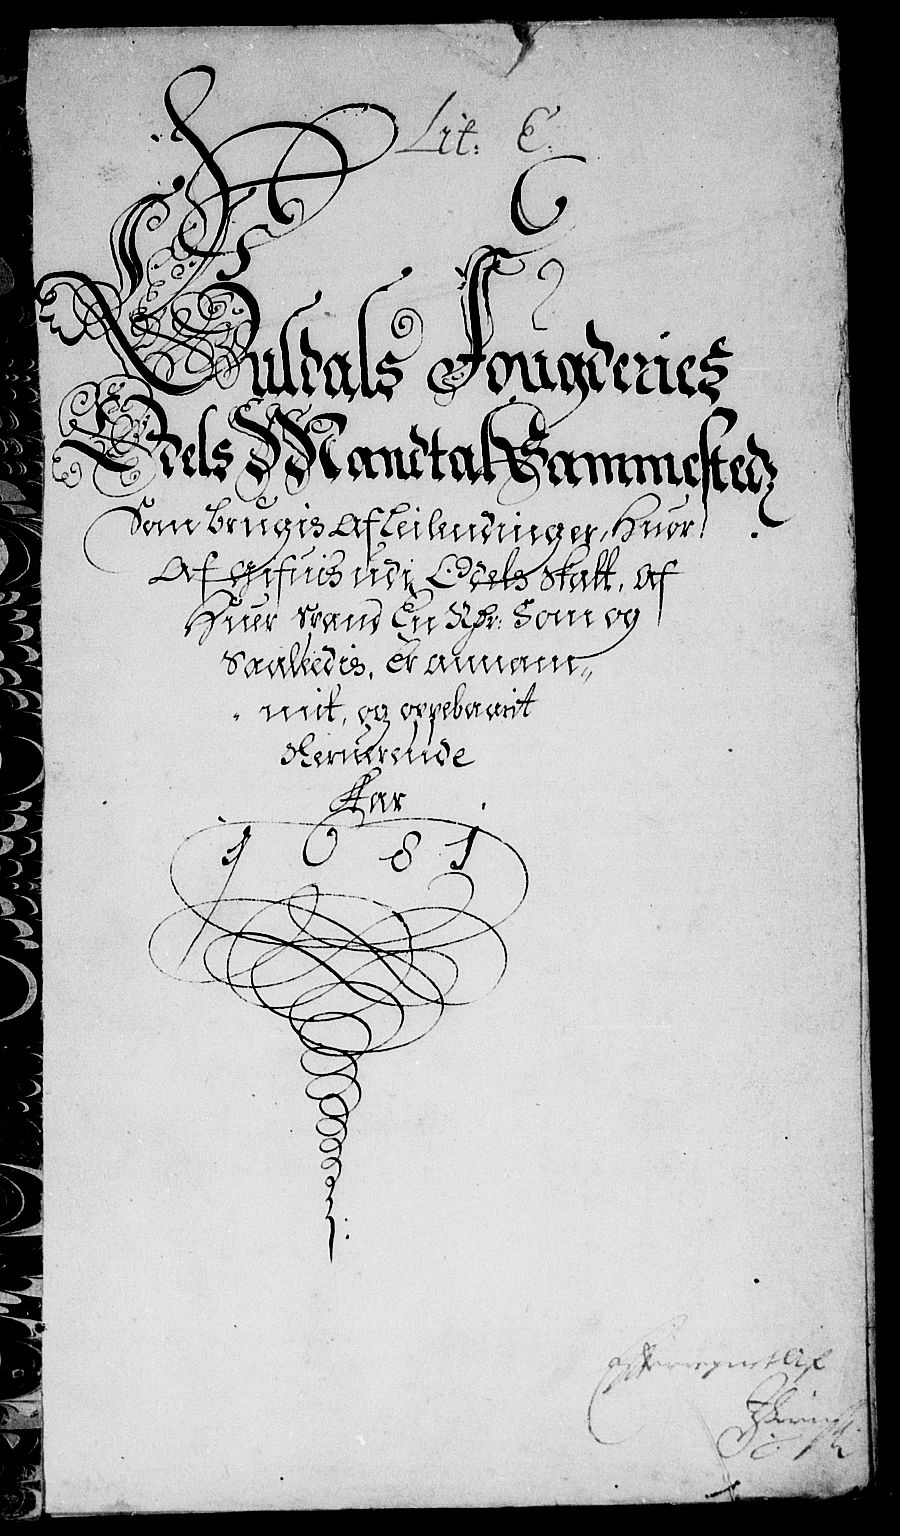 Lit: E.
Guldals Fougderies
Odels Mandtal Sammested,
Som brugis af leilendinger, Huor
Af Gifuis udj Odels Skatt, af
Huer Spand En Rdr: Som og
Saaledis, Er annam„
mit, og oppebaarit
Nerverende
Aar
1681
Efterregnet Af